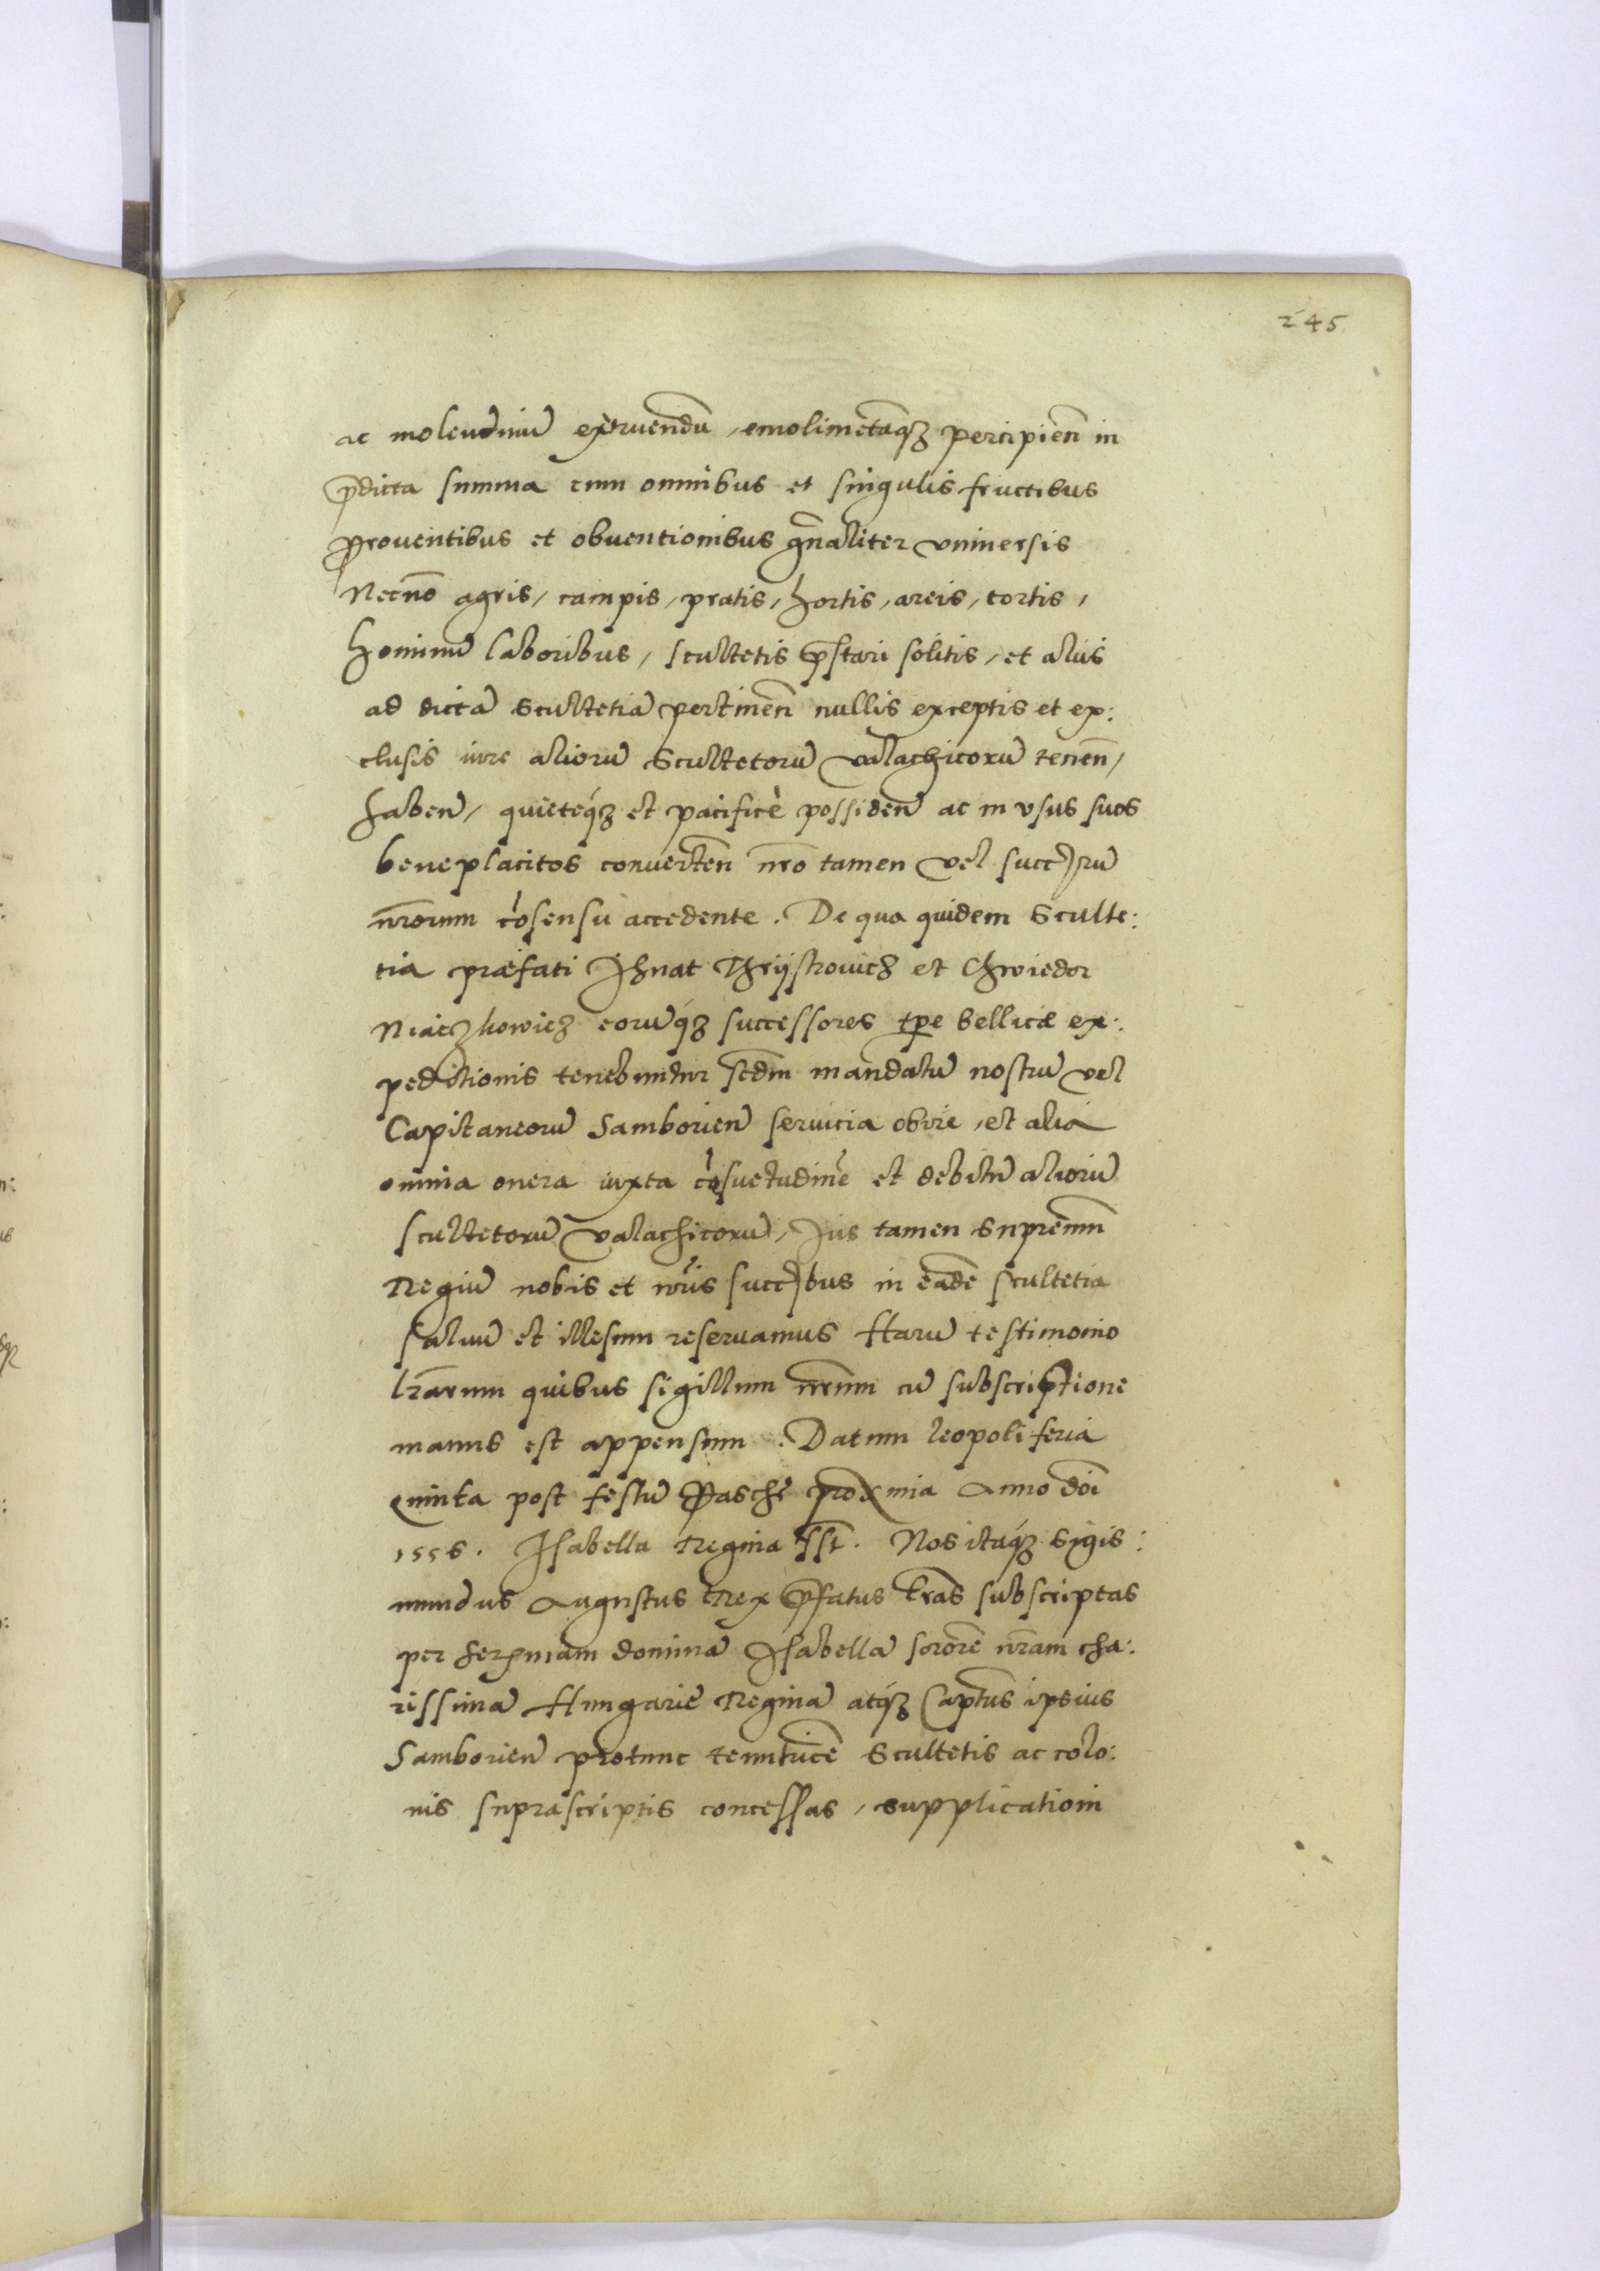 245
ac molendinū extruendū, emolimētaq3 percipien̄ in
p̄dicta summa cum omnibus et singulis fructibus
prouentibus et obuentionibus gn̄aliter vniuersis
Necnō agris, campis, pratis, hortis, areis, tortis,
hominū laboribus, scultetis p̄stari solitis, et aliis
ad dictā Scultetiā pertinen̄ nullis exceptis et ex:
clusis iure aliorū Scultetorū valachicorū tenen̄,
haben̄, quieteq́3 et pacificè possiden̄ ac in vsus suos
beneplacitos conuerten̄ nr̄o tamen vel succ̄rū
nr̄orum cōsensu accedente. De qua quidem Sculte:
tia præfati Ihnat Thrijstrouich et Chwiedor
Niaczkowicz eorūq́3 successores tp̄e bellicæ ex:
peditionis tenebuntur scdm̄ mandatū nostrū vel
Capitaneorū Samborien̄ seruicia obire, et alia
omnia onera iuxta cōsuetudinē et debitū aliorū
scultetorū valachicorū, Ius tamen supremū
Regiū nobis et nr̄is succ̄bus in eadē scultetia
saluū et illesum reseruamus Harū testimonio
lr̄arum quibus sigillum nr̄um cū subscriptione
manus est appensum. Datum leopoli feria
quinta post festū Paschę proxima Anno dōi
1556. Isabella Regina sst̄. Nos itaq́3 Sigis:
mundus Augustus Rex p̄fatus lr̄as subscriptas
per serenmam dominā Isabellā sororē nr̄am cha:
rissimā Hungarię Reginā atq́3 Captūs ipsius
Samborien̄ protunc tenutricē Scultetis ac colo:
nis suprascriptis concessas, supplicationi